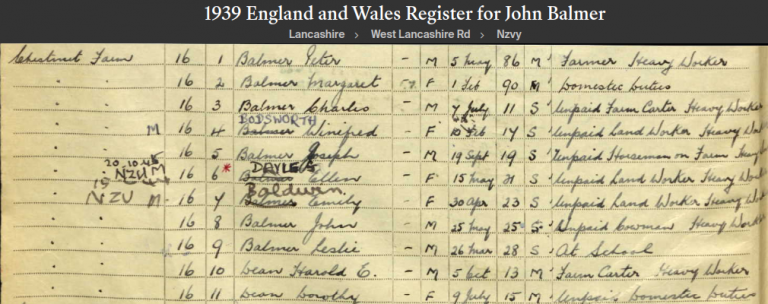 1939 England and Wales Register for John Balmer
Lancashire > West Lancashire Rd > Nzvy
Chestnut Farm 16 1 Balmer Peter - M 5 May 86 M Farmer Heavy Worker
" " 16 2 Balmer Margaret F 1 Feb 90 M Domestic Duties
" " 16 3 Balmer Charles - M 7 July 11 S Unpaid Farm Carter Heavy Worker
BODSWORTH
M 16 4 Balmer Winifred - F 10 Feb 14 S Unpaid Land Worker Heavy Work
16 5 Balmer Joseph - M 19 Sept 19 S Unpaid Horseman on Farm
20.10.45 DAYLE
NZU M 16 6* Balmer Ellen - F 15 May 21 S Unpaid Land Worker Heavy
Baldwin
NZU M 16 7 Balmer Emily - F 30 Apr 23 S Unpaid Land Worker Heavy Work
" " 16 8 Balmer John - M 25 May 25 S Unpaid Cowman Heavy Work
" " 16 9 Balmer Leslie - M 26 Mar 28 S At School
" " 16 10 Dean Harold E. - M 5 Oct 13 M Farm Carter Heavy Worker
" " 16 11 Dean Dorothy - F 9 July 15 M Unpaid Domestic Duties